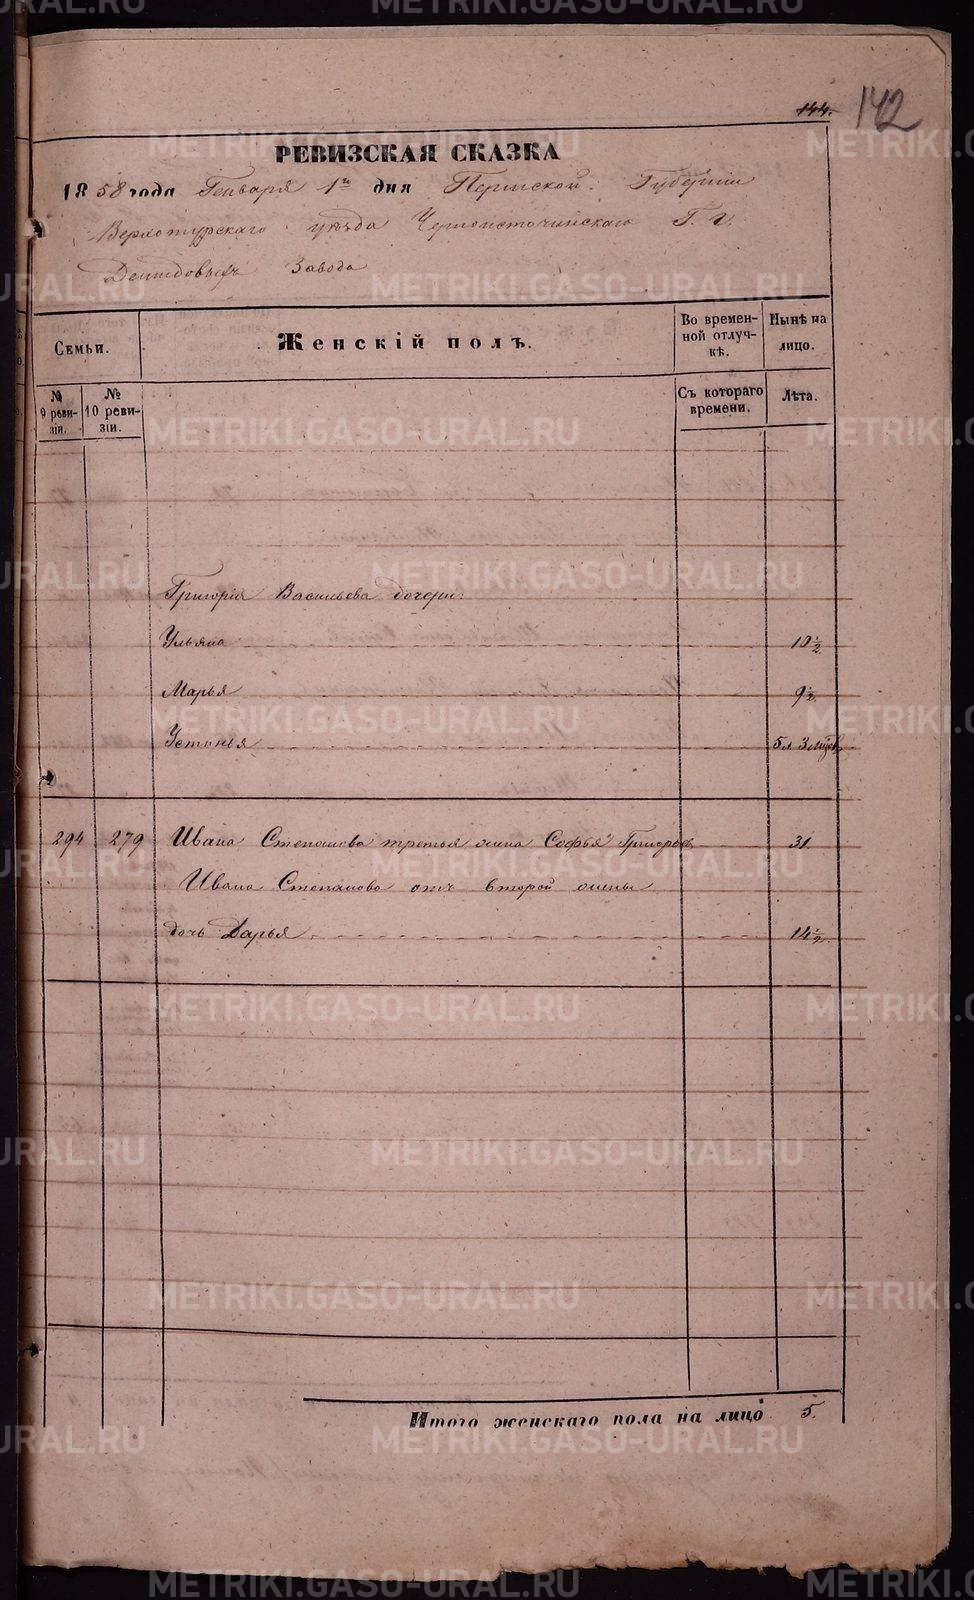 METRIKI.GASO-URAL.RU
144. 142
РЕВИЗСКАЯ СКАЗКА
1858 года Генваря 1го дня Пермской Губерніи
Верхотурскаго уѣзда Черноисточинскаго Г. г.
Демидовыхъ Завода
Семьи. Женскій полъ. Во времен-ной отлуч-кѣ. Нынѣ на лицо.
№ 9 реви-зіи. № 10 реви-зіи. Съ котораго времени. Лѣта.
Григорія Васильева дочери:
Ульяна 10 ½
Марья 9 ½
Устинья 5 л. 3 мѣсяц
294 279 Ивана Степанова третья жена Софья Григорьев. 31
Ивана Степанова отъ второй жены
дочь Дарья 14 ½
Итого женскаго пола на лицо 5.